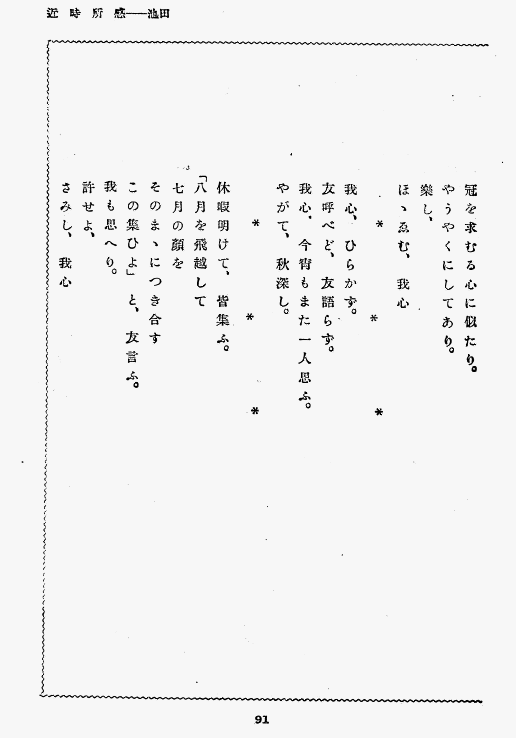 近時所感――池田
冠を求むる心に似たり。
やうやくにしてあり。
樂し、
ほゝゑむ、我心
＊　＊　＊
我心、ひらかず。
友呼べど、友語らず。
我心、今宵もまた一人思ふ。
やがて、秋深し。
＊　＊　＊
休暇明けて、皆集ふ。
「八月を飛越して
七月の顔を
そのまゝにつき合す
この集ひよ」と、友言ふ。
我も思へり。
許せよ、
さみし、我心
91